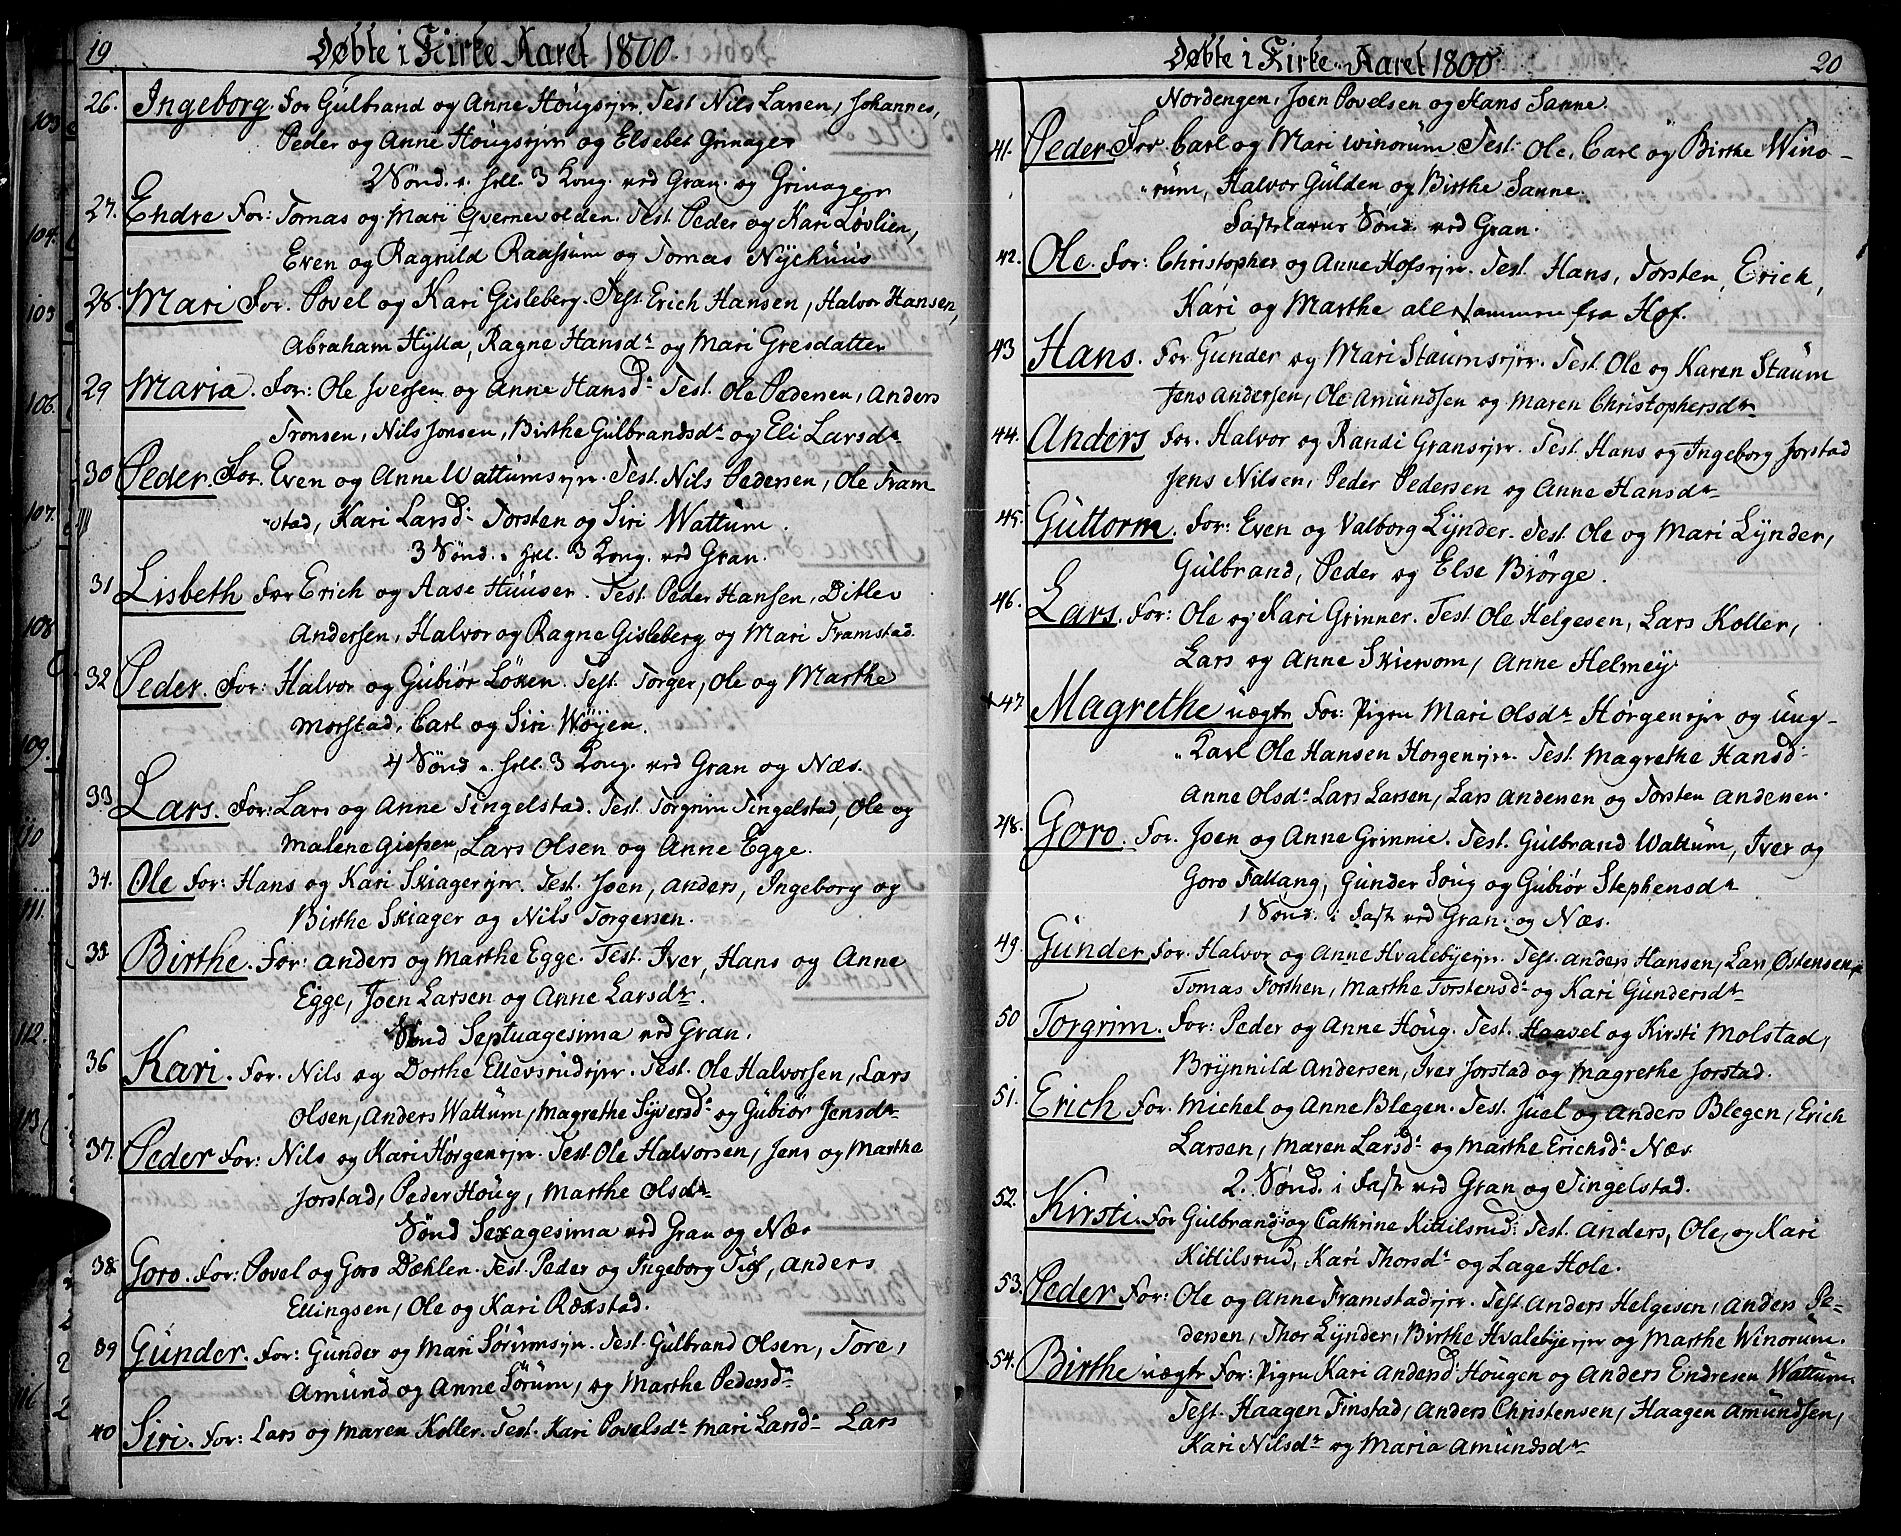 19 Døbte i Kirke Aaret 1800.
26. Ingeborg. For Gulbrand og Anne Hougsejer. Test. Nils Larsen, Johannes,
Peder og Anne Hougsejer og Elsebet Grinager
2 Sønd. e. hell. 3 Kong. ved Gran og Grinager
27. Endre For: Tomas og Mari Qvernevolden. Test. Peder og Kari Løvlien,
Even og Ragnild Raassum og Tomas Nyehuus
28. Mari For. Povel og Kari Gisleberg. Test. Erich Hansen, Halvor Hansen,
Abraham Hylla, Ragne Hansdr og Mari Gresdatter
29 Maria. For: Ole Iversen og Anne Hansdr Test. Ole Pedersen, Anders
Tronsen, Nils Jonsen, Birthe Gulbrandsdr og Eli Larsdr
30 Peder For. Even og Anne Wattumsejer. Test. Nils Pedersen, Ole Fram
stad, Kari Larsdr Torsten og Siri Wattum.
3 Sønd. e. hell. 3 Kong. ved Gran.
31 Lisbeth For Erich og Aase Huuser. Test. Peder Hansen, Ditlev
Andersen, Halvor og Ragne Gisleberg og Mari Framstad.
32 Peder. For: Halvor og Gubiør Løken. Test. Torger, Ole og Marthe
Morstad, Carl og Siri Wøyen.
4 Sønd e. hell. 3 Kong. ved Gran og Næs.
33 Lars. For: Lars og Anne Tingelstad. Test. Torgrim Tingelstad, Ole og
Malene Giefsen, Lars Olsen og Anne Egge.
34. Ole For: Hans og Kari Skiagerejer. Test. Joen, Anders, Ingeborg og
Birthe Skiager og Nils Torgersen.
35 Birthe. For: Anders og Marthe Egge. Test. Iver, Hans og Anne
Egge, Joen Larsen og Anne Larsdr.
Sønd Septuagesima ved Gran.
36 Kari. For. Nils og Dorthe Ellevsrudejer. Test. Ole Halvorsen, Lars
Olsen, Anders Wattum, Magrethe Syversdr og Gubiør Jensdr
37. Peder For: Nils og Kari Horgensejer. Test. Ole Halvorsen, Jens og Marthe
Jorstad, Peder Houg, Marthe Olsdr
Sønd Sexagesima ved Gran og Næs
38 Goro. For: Povel og Goro Dæhlen. Test. Peder og Ingeborg Tuf, Anders
Ellingsen, Ole og Kari Rækstad.
39 Gunder. For: Gunder og Mari Sørumsejer. Test. Gulbrand Olsen, Tore,
Amund og Anne Sørum, og Marthe Pedersdr
40 Siri. For: Lars og Maren Koller. Test. Kari Povelsdr Mari Larsdr Lars
103
104.
105
106.
107.
108
109.
110
111.
112.
113
116
Døbte i Kirke Aaret 1800. 20
Nordengen, Joen Povelsen og Hans Sanne.
41. Peder For Carl og Mari Winorum. Test. Ole, Carl og Birthe Wino-
rum, Halvor Gulden og Birthe Sanne.
Fastelavns Sønd. ved Gran.
42. Ole. For: Christopher og Anne Hofsejer. Test. Hans, Torsten, Erich,
Kari og Marthe allesammen fra Hof.
43 Hans. For Gunder og Mari Staumsejer. Test. Ole og Karen Staum
Jens Andersen, Ole Amundsen og Maren Christophersdr
44. Anders For. Halvor og Randi Gransejer. Test. Hans og Ingeborg Jorstad
Jens Nilsen, Peder Pedersen og Anne Hansdr
45. Guttorm. For: Even og Valborg Lynder. Test. Ole og Mari Lynder,
Gulbrand, Peder og Else Biørge.
46. Lars. For: Ole og Kari Grinner. Test Ole Helgesen, Lars Koller,
Lars og Anne Skiervom, Anne Helmey.
47 Magrethe uægte For: Pigen Mari Olsdr Horgensejer og Ung-
Karl Ole Hansen Horgensejer. Test. Magrethe Hansd:
Anne Olsdr Lars Larsen, Lars Andersen og Torsten Andersen.
48. Goro. For. Joen og Anne Grinnie. Test. Gulbrand Wattum, Iver og
Goro Fallang, Gunder Soug og Gubiør Stephensdr
1 Sønd. i Fast. ved Gran og Næs.
49. Gunder For. Halvor og Anne Hvalebyejer. Test. Anders Hansen, Lars Østensen,
Tomas Forthen, Marthe Torstensdr og Kari Gundersdr
50 Torgrim. For: Peder og Anne Houg. Test. Haavel og Kirsti Molstad,
Brynnild Andersen, Iver Jorstad og Magrethe Jorstad.
51. Erich For. Michel og Anne Blegen. Test. Juel og Anders Blegen, Erich
Larsen, Maren Larsdr og Marthe Erichsdr Næs
2. Sønd. i Fast. ved Gran og Tingelstad.
52. Kirsti. For Gulbrand og Cathrine Kittilsrud: Test. Anders, Ole, og Kari
Kittilsrud, Kari Thorsdr og Lage Hole.
53. Peder For: Ole og Anne Framstadejer. Test. Anders Helgesen, Anders Pe-
dersen, Thor Lynder, Birthe Hvalebyejer og Marthe Winorum.
54. Birthe uægte For: Pigen Kari Andersd: Hougen og Anders Endresen Wattum.
Test. Haagen Finstad, Anders Christensen, Haagen Amundsen,
Kari Nilsdr og Maria Amundsdr